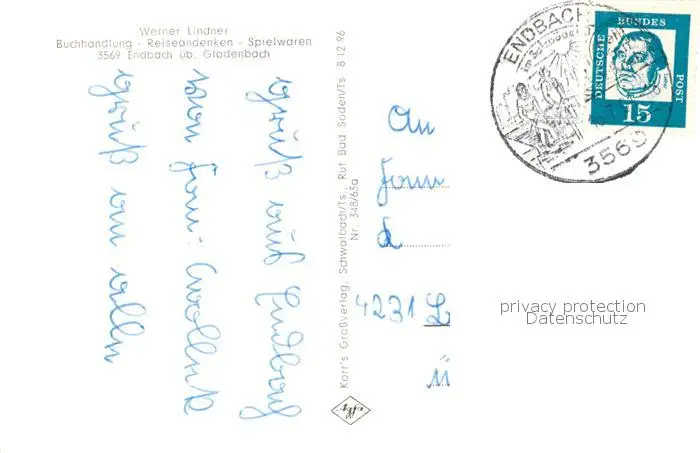 Werner Lindner
Buchhandlung - Reiseandenken - Spielwaren
3569 Endbach üb. Gladenbach
Gruß aus Endbach
von Fam.
Gruß an alle
Korr's Großverlag, Schwalbach/Ts., Ruf Bad Soden/Ts. 8 12 96
Nr. 348/63a
Agfa
An
Fam
4231
ENDBACH
3569
DEUTSCHE
BUNDES
POST
15
privacy protection
Datenschutz